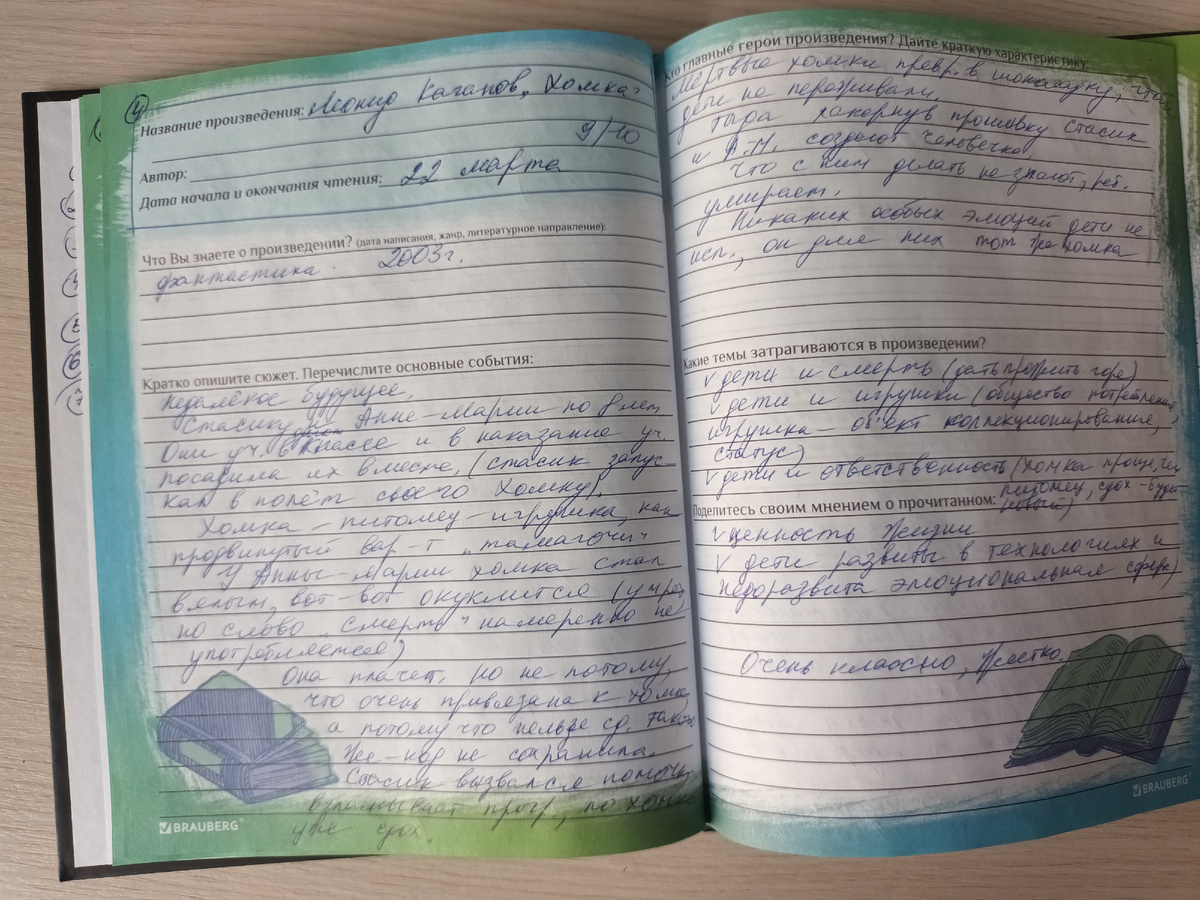 4
Название произведения: Леонид Каганов „Хомка"
9/10
Автор:
Дата начала и окончания чтения: 22 марта
Что Вы знаете о произведении? (дата написания, жанр, литературное направление):
фантастика. 2003г.
Кратко опишите сюжет. Перечислите основные события:
Недалёкое будущее.
Стасику и Анне-Марии по 8 лет
Они уч. в классе и в наказание уч.
посадила их вместе, (Стасик запус-
кал в полёт своего Хомку).
Хомка – питомец-игрушка, как
продвинутый вар-т „тамагочи"
У Анны-Марии хомка стал
вялым, вот-вот окуклится (умрет,
но слово „смерть" намеренно не
употребляется)
Она плачет, но не потому,
что очень привязана к хомке,
а потому что нельзя сд. такого
же – код не сохранила.
Стасик вызвался помочь,
взламывает прогр, но хомка
уже сдох.
BRAUBERG
Кто главные герои произведения? Дайте краткую характеристику:
Мёртвые хомки превр. в шоколадку, чтобы
дети не переживали.
Тогда хакернув прошивку Стасик
и А.М. создают человечка.
Что с ним делать не знают, реб.
умирает.
Никаких особых эмоций дети не
исп., он для них тот же хомка
Какие темы затрагиваются в произведении?
v дети и смерть (дать прожить горе)
v дети и игрушки (общество потребления,
игрушка – объект коллекционирования,
статус)
v дети и ответственность (хомка проще, чем
питомец, сдох – будет
новый)
Поделитесь своим мнением о прочитанном:
v ценность жизни
v дети развиты в технологиях и
недоразвита эмоциональная сфера)
Очень классно, жестко.
BRAUBERG